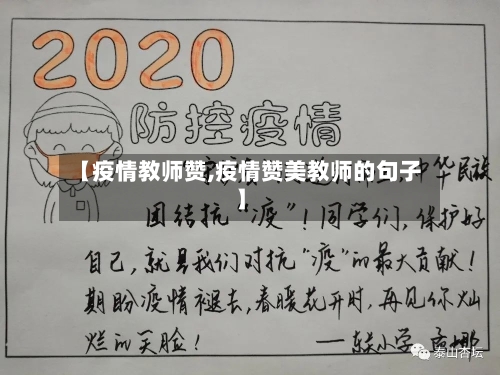 2020
防控疫情
【疫情教师赞,疫情赞美教师的句子
】
中华民族
团结抗“疫”!同学们,保护好
自己,就是我们对抗“疫”的最大贡献!
期盼疫情褪去,春暖花开时,再见你灿
烂的笑脸!
——东关小学 孟娜
泰山杏坛